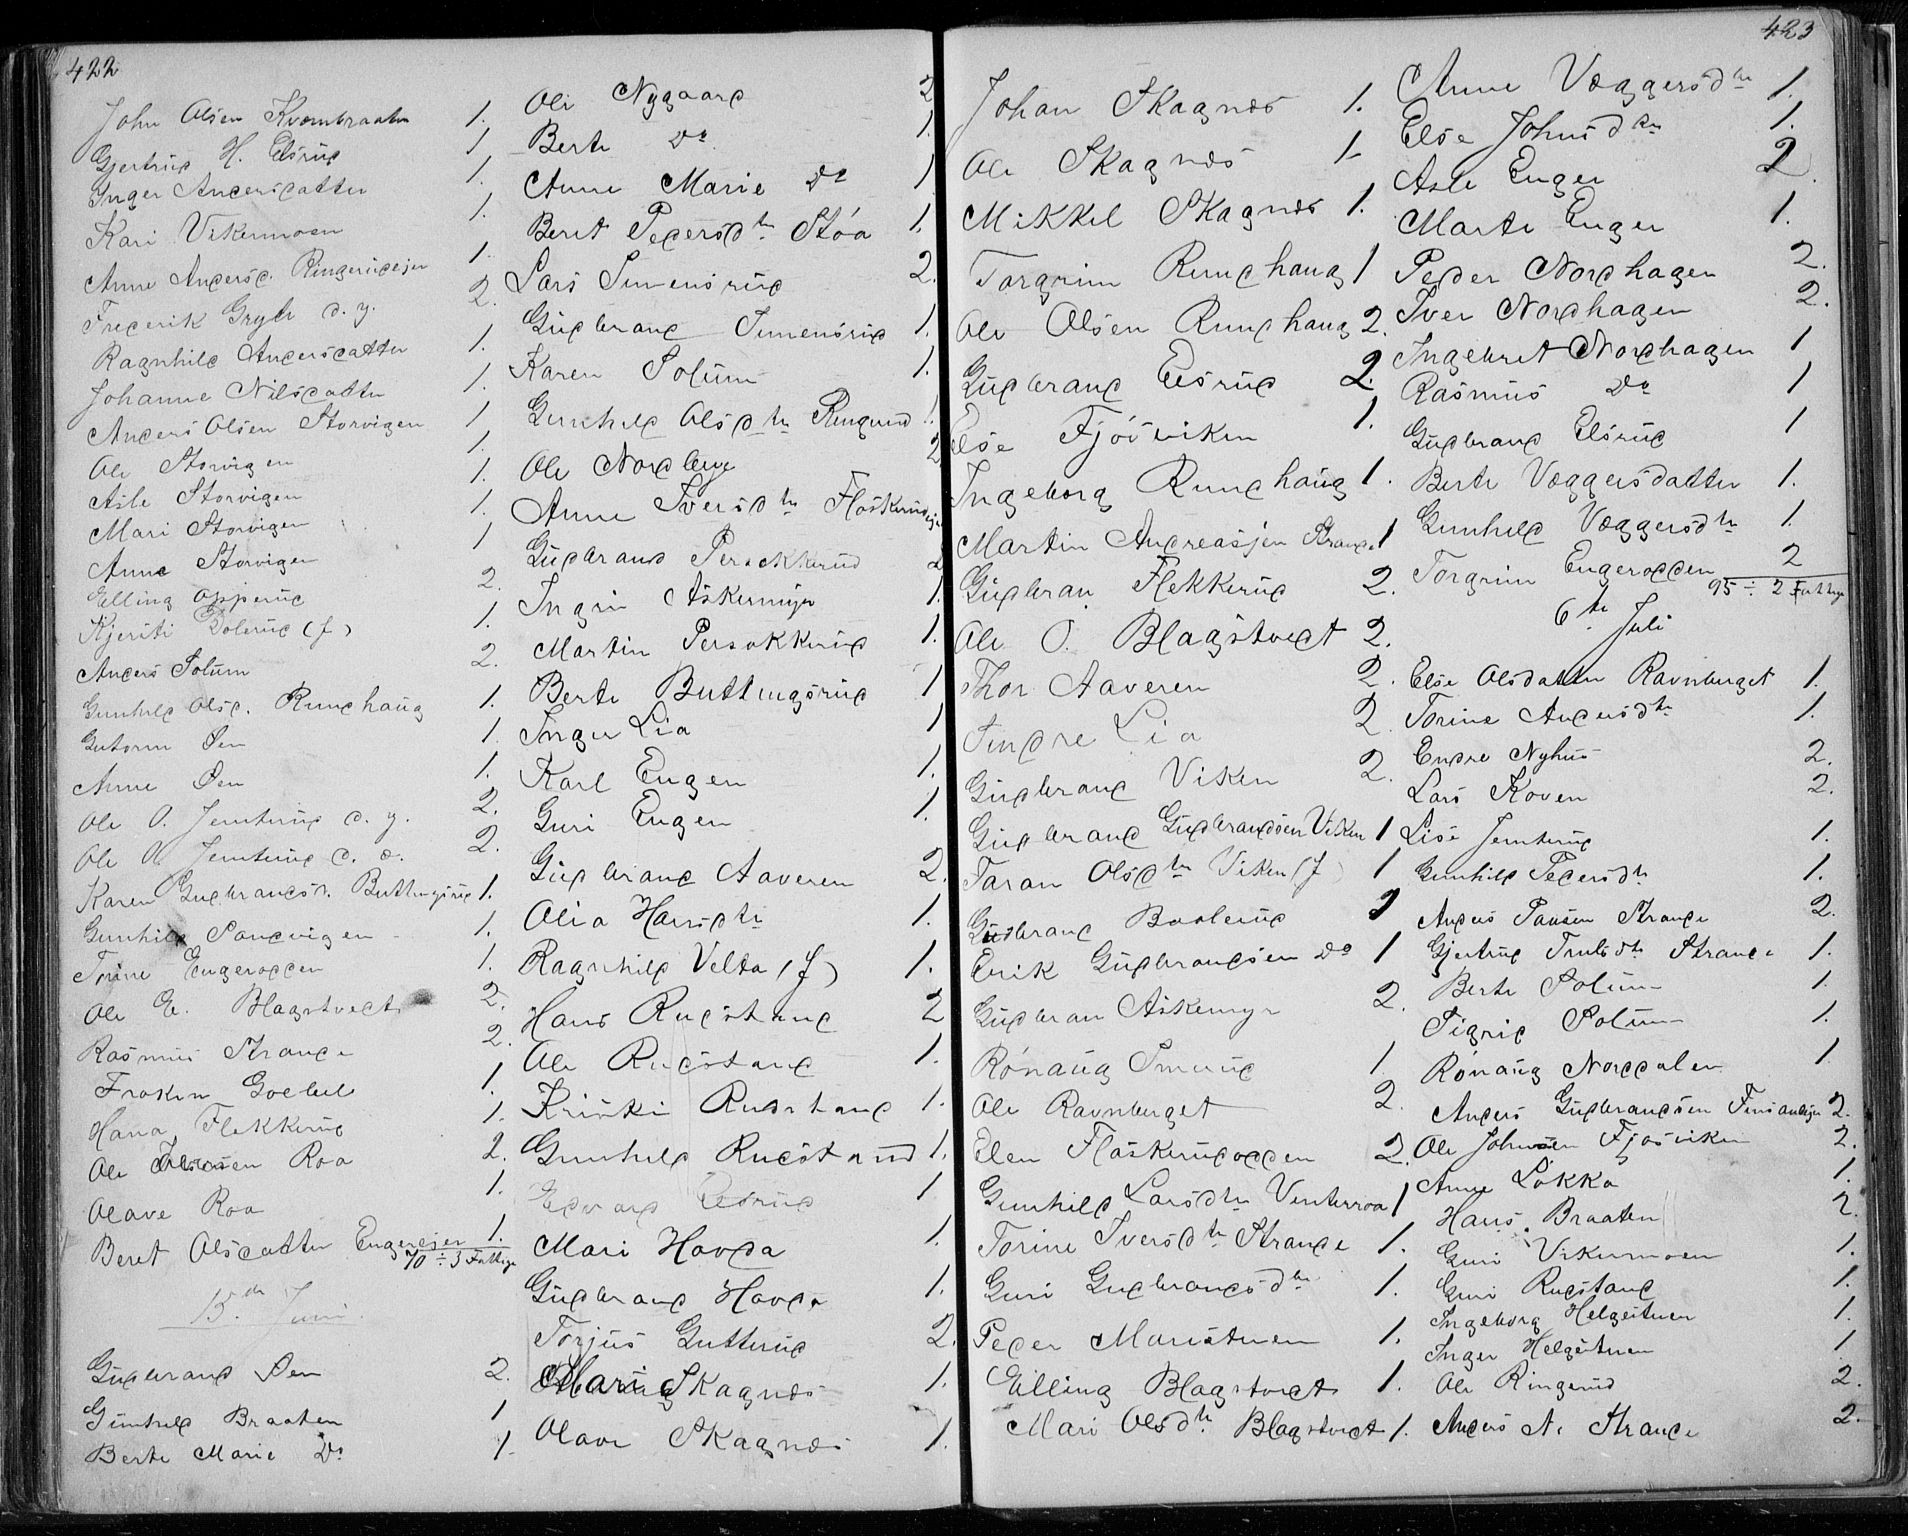 422
John Olsen Kvernbraaten 1.
Gjertrud H. Elsrud 1
Inger Andersdatter 1.
Kari Vikermoen 1.
Anne Andersd. Ringerudejer 1.
Frederik Gryte d. y. 2.
Ragnhild Andersdatter 1.
Johanne Nilsdatter 1.
Anders Olsen Storvigen 1
Ole Storvigen 1.
Asle Storvigen 1.
Mari Storvigen 1.
Anne Storvigen 1
Elling Opperud 2.
Kjersti Bolerud (f) 1.
Anders Solum 2.
Gunhild Olsd. Rundhaug 1.
Gutorm Øen 1.
Anne Øen 1.
Ole O. Jemterud d. y. 2.
Ole O. Jemterud d. æ. 2.
Karen Gudbrandsd. Buttingsrud 1.
Gunhild Sandvigen 1.
Torine Engerodden 1.
Ole E. Blagstvedt 2.
Rasmus Strande 2.
Frøken Goebel 1
Hana Flekkerud 1.
Ole Roa 2.
Olave Roa 1.
Beret Olsdatter Engerejer 1.
70 ÷ 3 Fattige
15de Juni
Gudbrand Øen 2.
Gunhild Braaten 1
Berte Marie Do 1.
Ole Nygaard 2
Berte Do 1.
Anne Marie Do 1
Beret Pedersdtr Støa 1.
Lars Simensrud 2.
Gudbrand Simensrud 1.
Karen Solum 1.
Gunhild Olsdtr Ringerud 1.
Ole Nordbye 2
Anne Iversdtr Flaskerudejer
Gudbrand Persokkerud 2
Ingri Askermyr 1.
Martin Persokkerud 1.
Berte Buttingsrud 1
Inger Lia 1
Karl Engen 1.
Guri Engen 1.
Gudbrand Aaveren 2.
Olia Hansdtr 1.
Ragnhild Velta (f) 1.
Hans Rudstand 2
Ole Rudstand 1.
Kristi Rudstand 1.
Gunhild Rudstand 1.
Edvard Elsrud 1
Mari Hovda 1.
Gudbrand Hovda 1.
Torjus Gutterud 2.
Mari Skagnæs 1.
Olave Skagnæs 1.
423
Johan Skagnæs 1.
Ole Skagnæs 1.
Mikkel Skagnæs 1.
Torgrim Rundhaug 1
Ole Olsen Rundhaug 2.
Gudbrand Elsrud 2.
Else Fjøsviken 1.
Ingeborg Rundhaug 1.
Martin Andreasjen Strande 1
Gudbran Flekkerud 2.
Ole O. Blagstvedt 2.
Thor Aaveren 2.
Sindre Lia 2
Gudbrand Viken 2.
Gudbrand Gudbrandsen Viken 1
Taran Olsdtr Viken (f) 1
Gudbrand Bolerud 2
Erik Gudbrandsen Do 1
Gudbran Askemyr 2.
Rønaug Smerud 1
Ole Ravnberget 2.
Elen Flaskerudodden 2.
Gunhild Larsdtr Venterroa 1
Torine Iversdtr Strande 1.
Guri Gudbrandsdtr 1.
Peder Maristuen 1.
Elling Blagstvedt 1.
Mari Olsdtr Blagstvedt 1.
Anne Væggersdtr 1.
Else Johnsdtr 1.
Asle Enger 2.
Marte Enger 1.
Peder Nordhagen 2.
Iver Nordhagen 2.
Ingebret Nordhagen 1
Rasmus Do 1
Gudbrand Elsrud 1
Berte Væggersdatter 1.
Gunhild Væggersdtr 1.
Torgrim Engerodden 2
95 ÷ 2 Fattige
6te Juli
Else Olsdatter Ravnberget 1.
Torine Andersdtr 1.
Endre Nyhus 2.
Lars Koven 2.
Lise Jemterud 1.
Gunhild Pedersdtr 1.
Anders Paulsen Strande 2.
Gjertrud Trulsdtr Strande 1.
Berte Solum 1.
Sigrid Solum 1.
Rønaug Norddalen 1.
Anders Gudbrandsen 2.
Ole Johnsen Fjøsviken 2.
Anne Løkka 1.
Hans Braaten 2.
Guri Vikermoen 1.
Guri Rudstand 1.
Ingeborg Helgestuen 1.
Inger Helgestuen 1
Ole Ringerud 2.
Anders N. Strande 2.